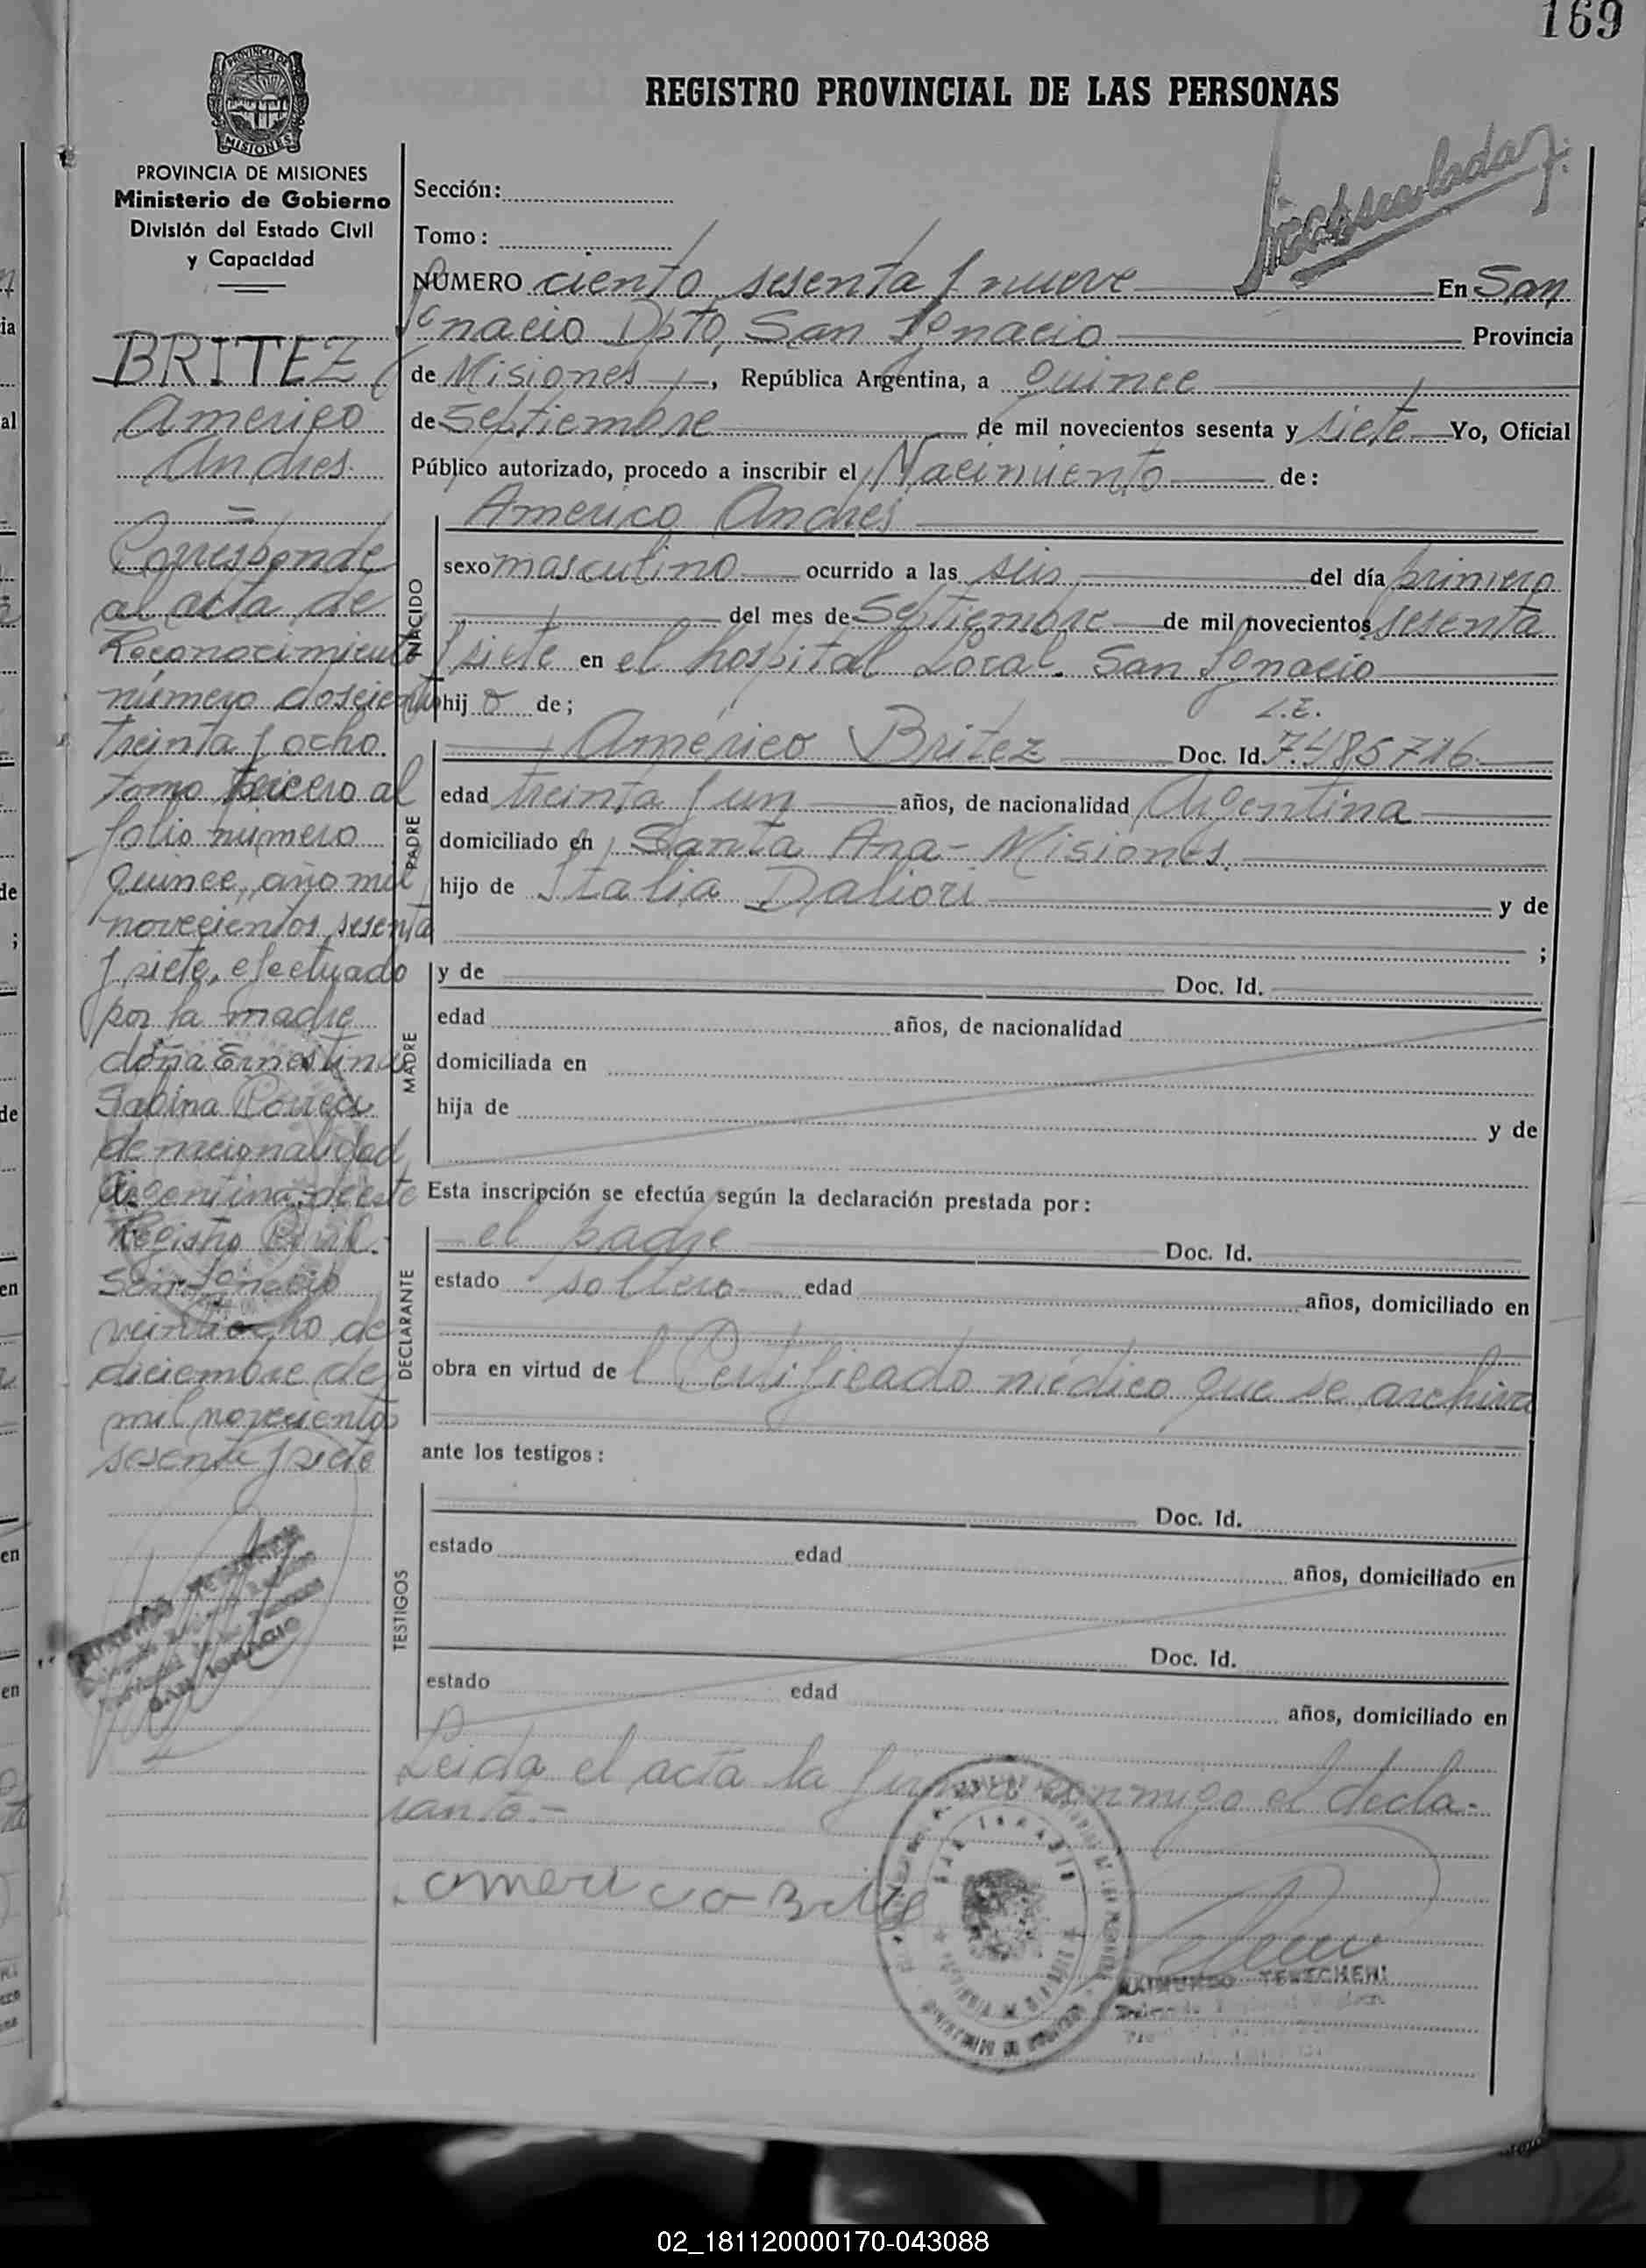 169
REGISTRO PROVINCIAL DE LAS PERSONAS
PROVINCIA DE MISIONES
Ministerio de Gobierno
División del Estado Civil
y Capacidad
BRITEZ
Americo
Andres
Corresponde
al acta de
Reconocimiento
número doscientos
treinta y ocho
tomo tercero al
folio número
quince, año mil
novecientos sesenta
y siete, efectuado
por la madre
doña Ernestina
Sabina
de nacionalidad
Argentina, de este
Registro Civil.
San Ignacio
veintiocho de
diciembre de
mil novecientos
sesenta y siete
SAN IGNACIO
Sección:
Tomo:
NÚMERO ciento sesenta y nueve En San
Ignacio Dpto, San Ignacio Provincia
de Misiones, República Argentina, a quince
de Septiembre de mil novecientos sesenta y siete Yo, Oficial
Público autorizado, procedo a inscribir el Nacimiento de:
Americo Andres
NACIDO
sexo masculino ocurrido a las seis del día primero
del mes de Septiembre de mil novecientos sesenta
y siete en el hospital Local. San Ignacio
hijo de;
L.E.
PADRE
Américo Britez Doc. Id. 7.485716
edad treinta y un años, de nacionalidad Argentina
domiciliado en Santa Ana- Misiones.
hijo de Italia Daliori y de
;
MADRE
y de Doc. Id.
edad años, de nacionalidad
domiciliada en
hija de y de
Esta inscripción se efectúa según la declaración prestada por:
DECLARANTE
el padre Doc. Id.
estado soltero edad años, domiciliado en
obra en virtud de l Certificado médico que se archiva
ante los testigos:
TESTIGOS
Doc. Id.
estado edad años, domiciliado en
Doc. Id.
estado edad años, domiciliado en
Leida el acta la firma conmigo el decla-
rante.-
americo Britez
SAN IGNACIO
RAIMUNDO
02_181120000170-043088